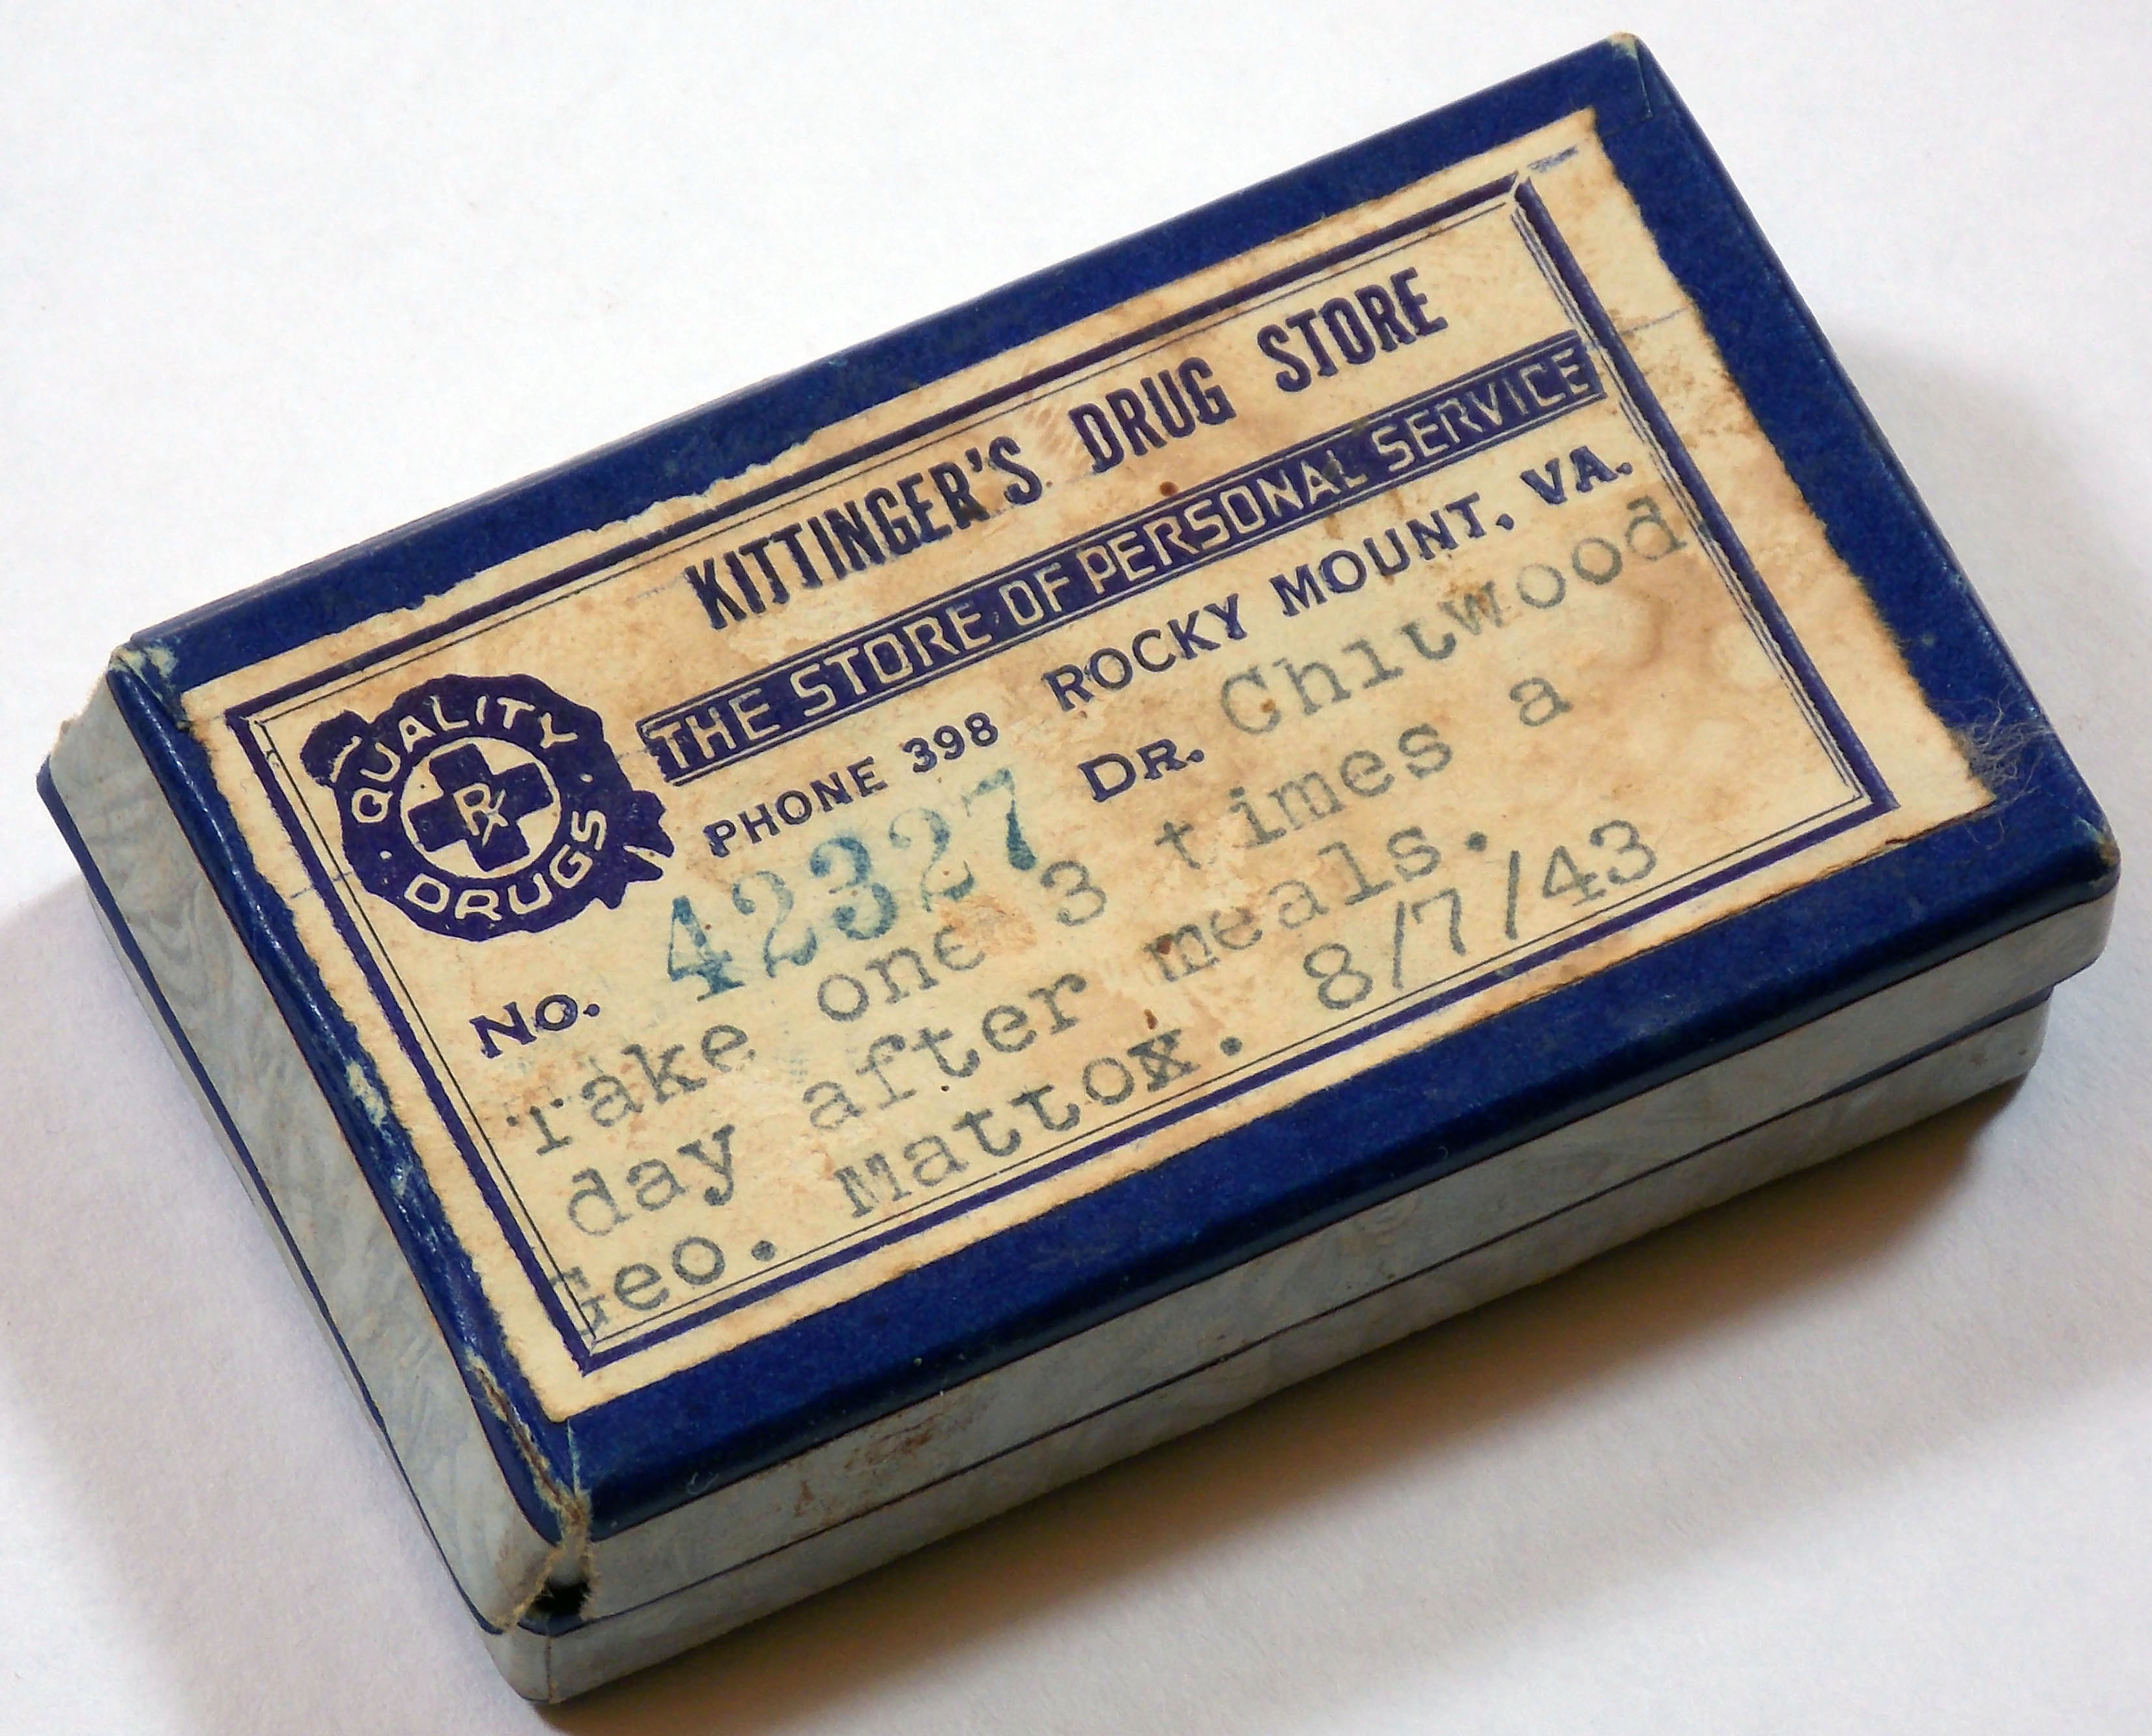 KITTINGER'S DRUG STORE
THE STORE OF PERSONAL SERVICE
PHONE 398 ROCKY MOUNT, VA.
QUALITY
Rx
DRUGS
No. 42327 DR. Chitwood.
Take one 3 times a
day after meals.
Geo. Mattox. 8/7/43